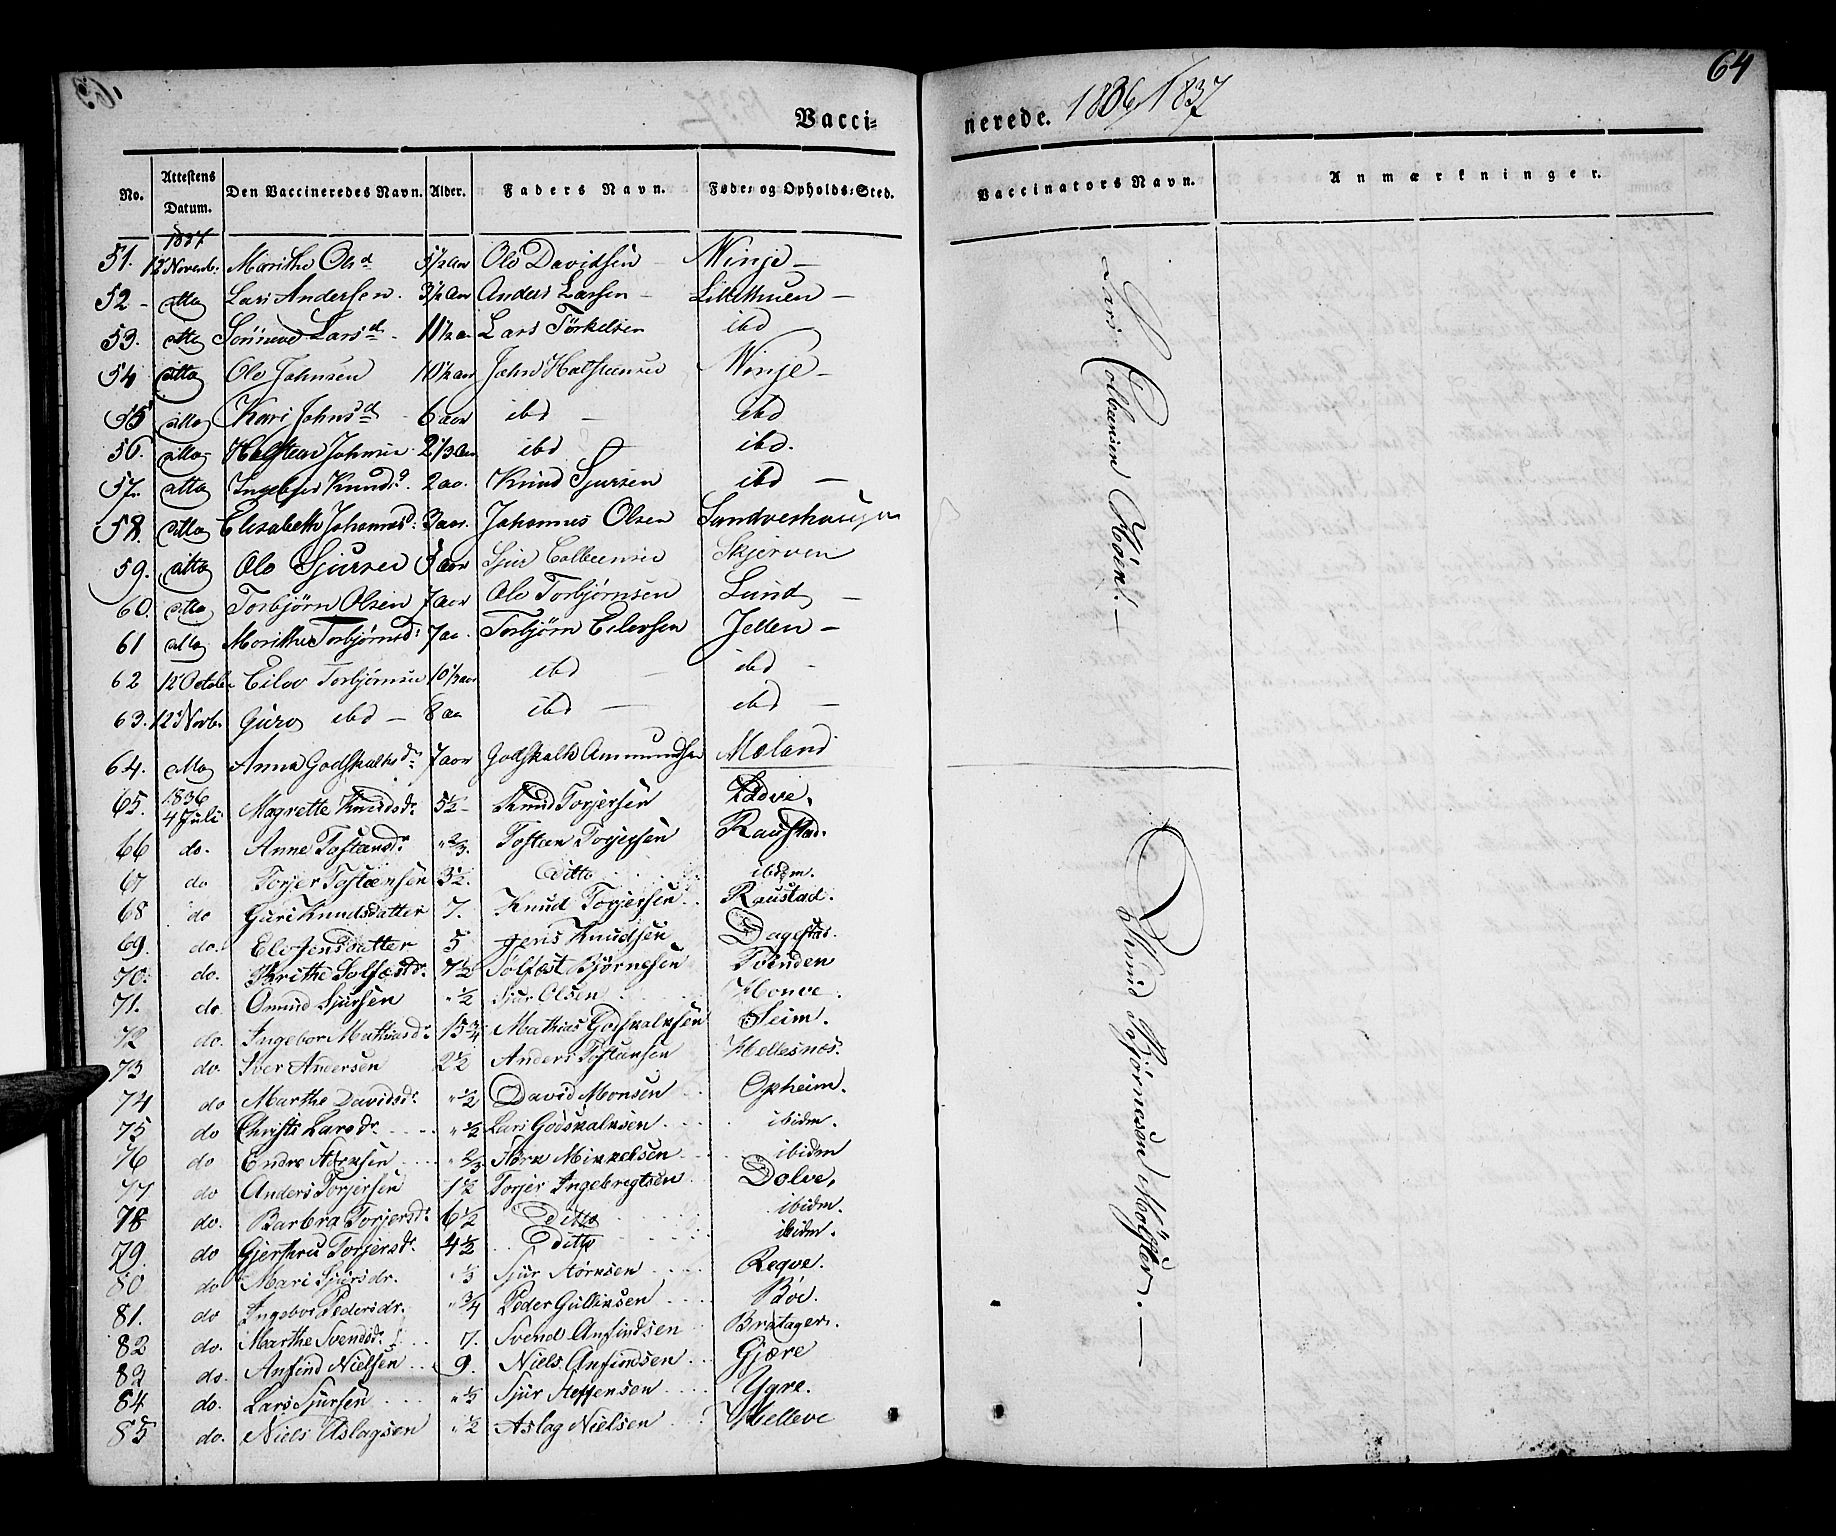 64
Vacci-
nerede. 1836/1837
No. Attestens Datum. Den Vaccineredes Navn. Alder. Faders Navn. Føde- og Opholds-Sted.
Vaccinators Navn. Anmærkninger.
1837
51. 12 Novemb. Marithe Olsd 5 1/2 aar Ole Davidsen Winje
52 ditto Lars Andersen. 3 1/2 aar Anders Larsen Lillethuen
53. ditto Larsd 11 1/2 a. Lars Törkelsen ibd
54 ditto Ole Johnsen 10 1/2 aar John Halsteensen Winje
55 ditto Kari Johnsd 6 aar ibd ibd
56. ditto Halsteen Johnsen 2 1/3 aar ibd ibd.
57. ditto Knudsd. 2 aa. Knud Sjursen ibd
58. ditto Elisabeth Johannesd: 3 aar. Johannes Olsen
59. ditto Ole Sjursen 3 aar Sjur Colbeensen Skjerven
60. ditto Torbjörn Olsen 7 aar Ole Torbjörnsen Lund
61 ditto Marithe Torbjörnsd: 7 aa. Torbjörn Eilevsen Jellen
62 12 October Eilev Torbjörnsen 10 1/2 aar ibd ibd
63. 12 Novb. Guro ibd 8 aa ibd ibd
64. ditto Anna Godskalksd: 7 aar Godskalk Ammundsen Mæland
Lars Colbeensen
65. 1836 4 Juli Magrette Knudsdr 5 1/2 Knud Torjersen
66 do. Anne Tostensdr " 2/3. Tosten Torjersen Raustad.
67 do Torjer Tosteensen 3 1/2. Ditto ibidm.
68 do Guri Knudsdatter 7. Knud Torjersen Raustad.
69. do. Eli Jensdatter 5 Jens Knudsen Dagestad.
70. do. Brithe Solfæstdr 7 1/2 Solfæst Björnesen Tvinden
71. do. Omund Sjursen " 1/2 Sjur Olsen Honve.
72 do. Ingebor Mathiasdr 15 3/4 Mathias Godskalksen Seim.
73 do. Iver Andersen 2 1/2 Anders Tostensen Hellesnæs.
74 do Marthe Davidsdr " 1/2 David Monsen Opheim.
75 do Christi Larsdr " 1/2 Lars Godskalksen ibidm.
76 do Endre Störksen 2/3 Störk Mikkelsen ibidm
77 do Anders Torjersen 1 1/2 Torjer Ingebregtsen Dolve.
78 do. Barbra Torjersdr 6 1/2 Ditto ibidm.
79. do Gjerthru Torjersdr. 4 1/2 Ditto ibidm.
80 do Mari Sjursdr. " 1/3 Sjur Störksen Reqve.
81. do Ingebor Pedersdr. " 3/4 Peder Gulliksen Böe.
82 do. Marthe Svendsdr 7. Svend Anfindsen Brætager.
83 do. Anfind Nielsen 9. Niels Anfindsen Gjære
84 do. Lars Sjursen " 1/3 Sjur Steffensen Ygre.
85 do. Niels Aslagsen " 1/2 Aslag Nielsen Helleve
Knud Björnesen Mögster.